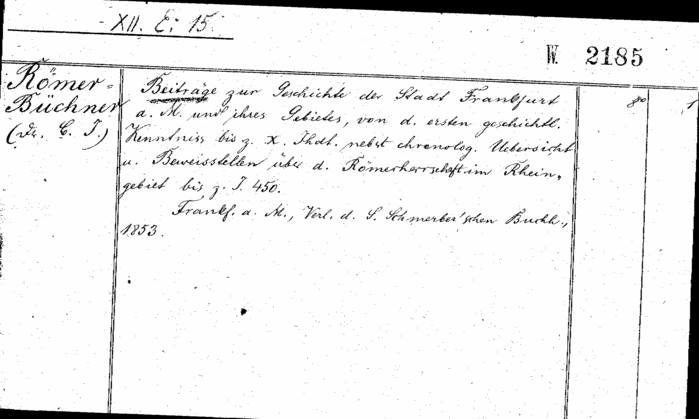 XII. E: 15.
W. 2185
Römer-
Büchner
(Dr. B. J.)
Beiträge zur Geschichte der Stadt Frankfurt
a. M. und ihres Gebietes, von d. ersten geschichtl.
Kenntniss bis z. X. Jhdt. nebst chronolog. Uebersicht
u. Beweisstellen über d. Römerherrschaft im Rhein-
gebiet bis z. J. 450.
Frankf. a. M., Verl. d. S. Schmerber'schen Buchh.,
1853.
8°
1